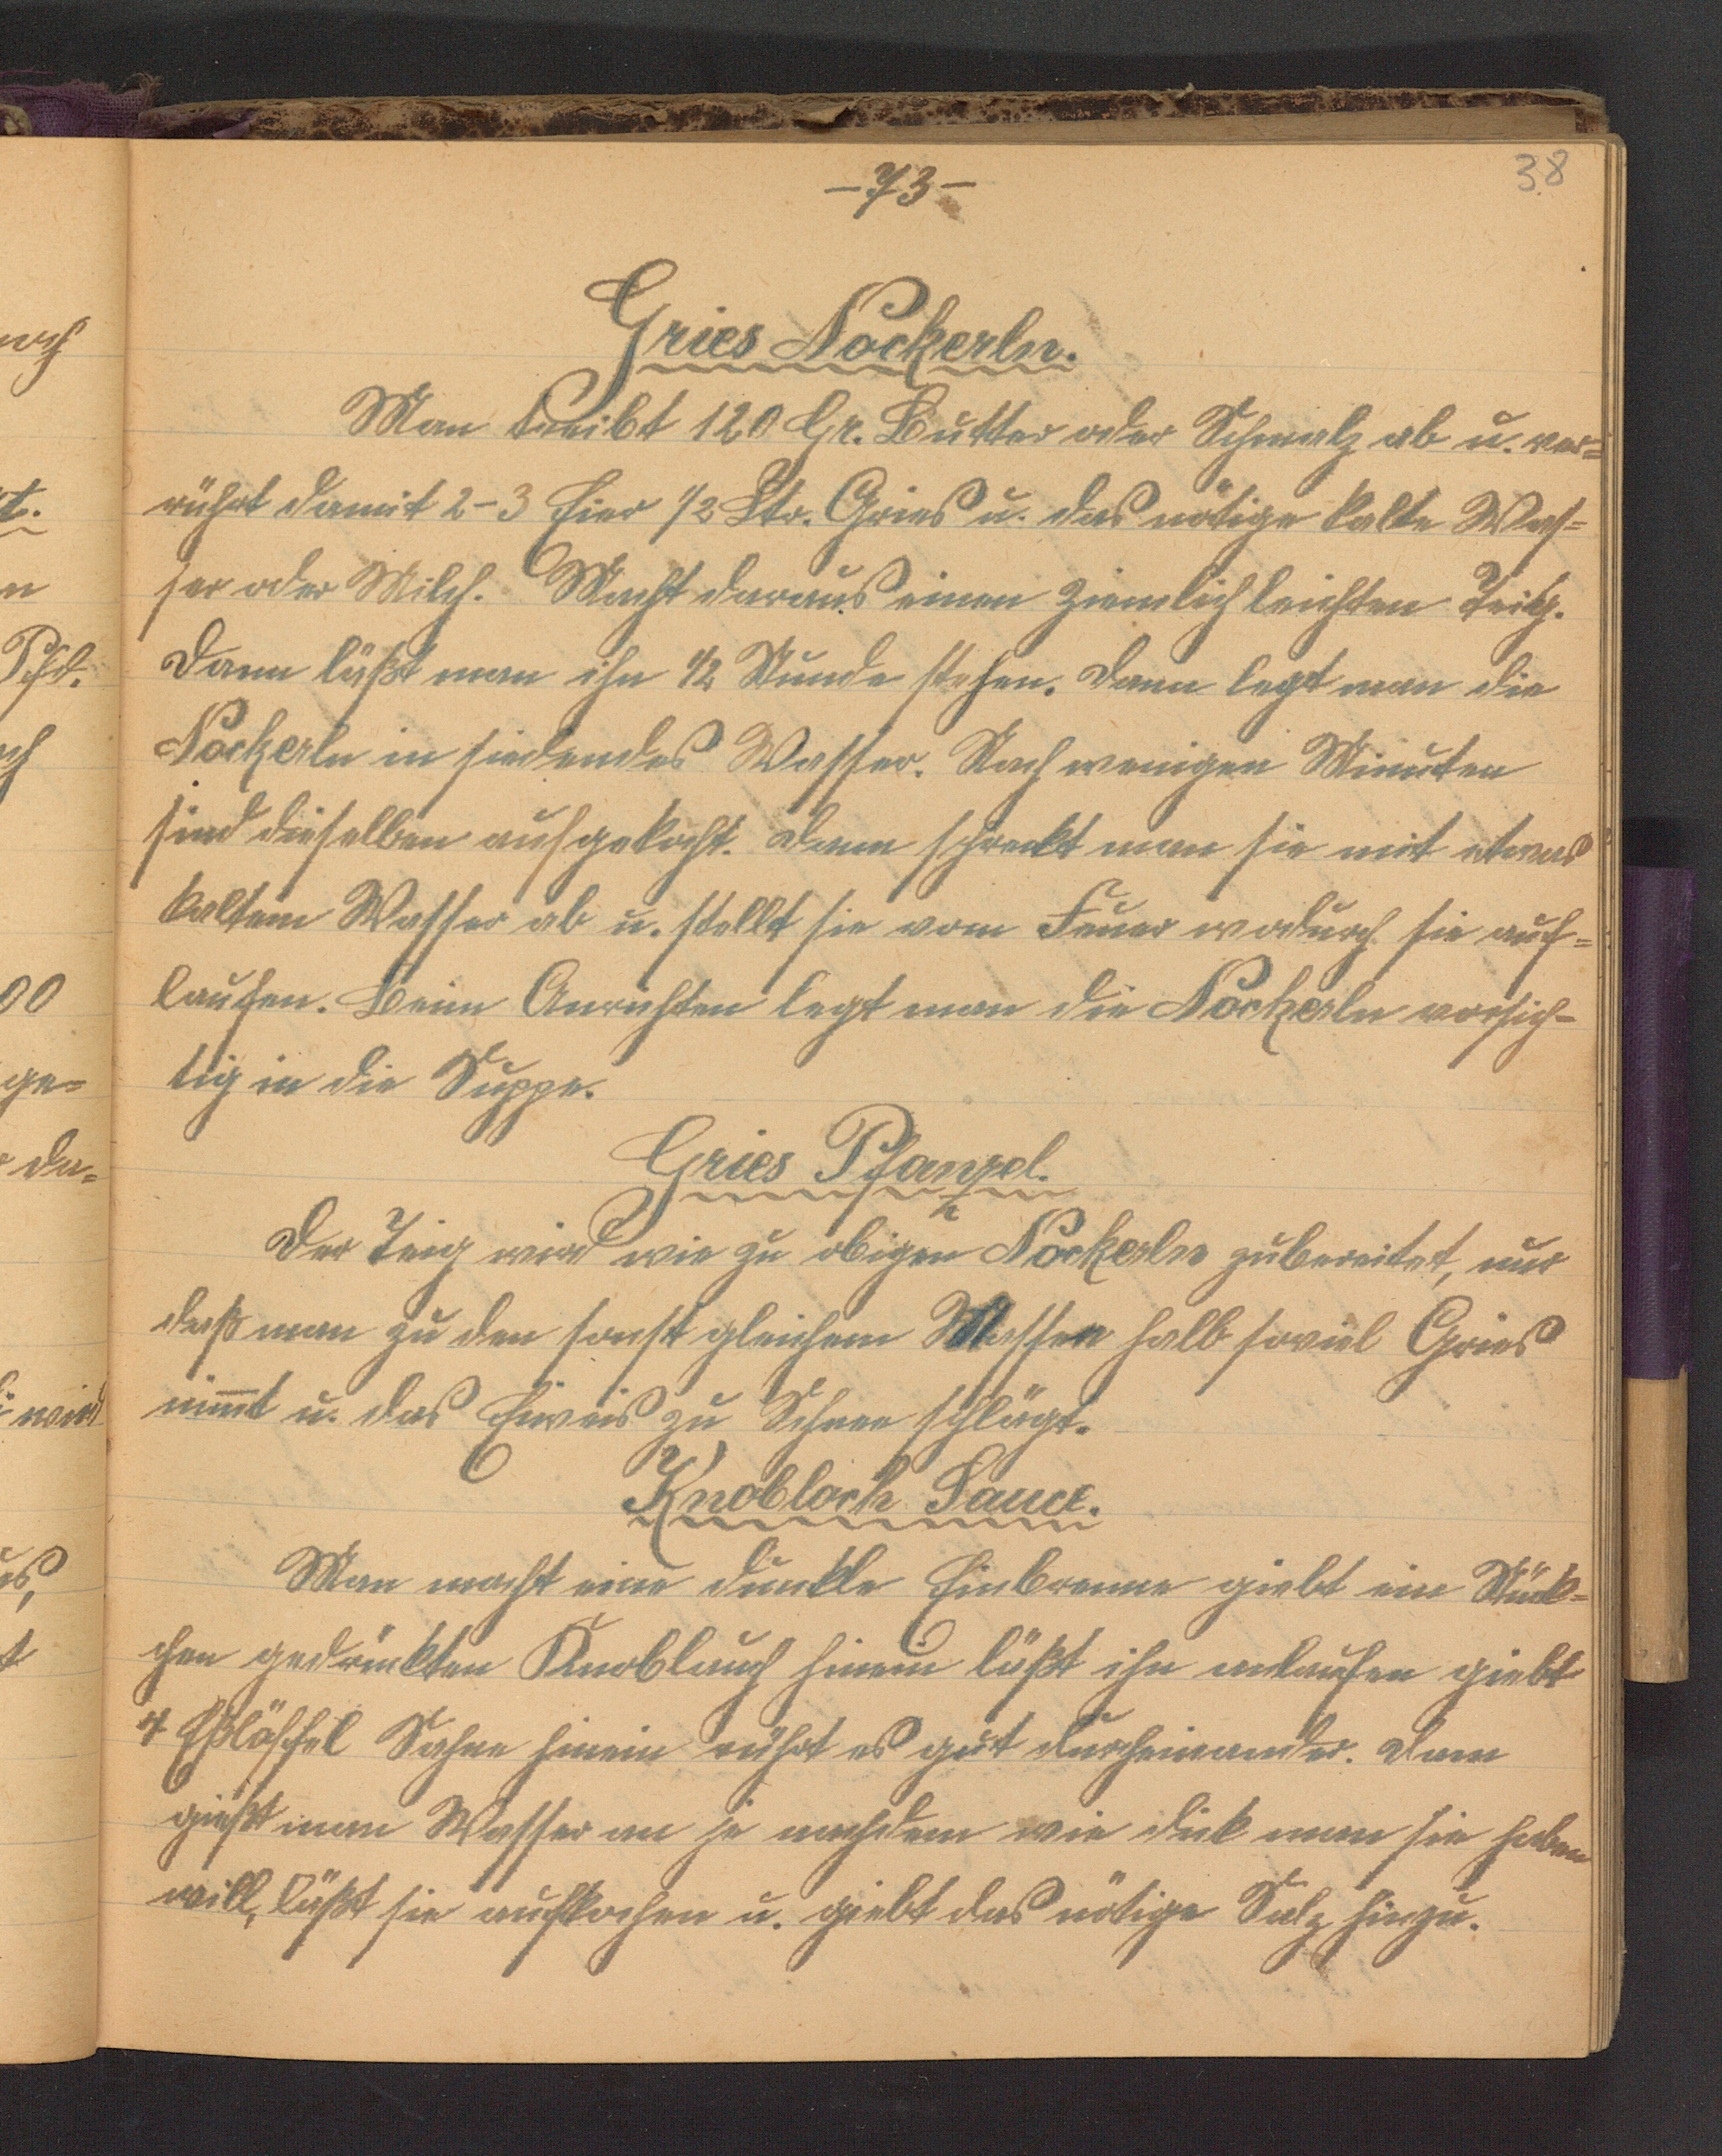 -73-
38
Gries Nockerln.
Man treibt 120 Gr. Butter oder Schmalz ab u. ver=
rührt damit 2-3 Eier 1/2 Ltr. Gries u. das nötige kalte Was=
ser oder Milch. Macht daraus einen ziemlich leichten Teig.
Dann läßt man ihn 1/2 Stunde stehen. Dann legt man die
Nockerln in siedendes Wasser. Nach wenigen Minuten
sind dieselben aufgekocht. Dann schreckt man sie mit etwas
kaltem Wasser ab u. stellt sie vom Feuer wodurch sie auf=
laufen. Beim Anrichten legt man die Nockerln vorsich=
tig in die Suppe.
Gries Pfanzel.
Der Teig wird wie zu obigen Nockerln zubereitet, nur
daß man zu den sonst gleichem Massen halb soviel Gries
nim̅t u. das Eiweis zu Schnee schlägt.
Knobloch Sauce.
Man macht eine dunkle Einbrenne giebt ein Stück=
chen gedrückten Knoblauch hinein läßt ihn anlaufen giebt
4 Eßlöffel Sahne hinein rührt es gut durcheinander. Dann
gießt man Wasser an je nachdem wie dick man sie haben
will, läßt sie aufkochen u. giebt das nötige Salz hinzu.
noch
t.
n
Pfd.
ch
00
ge=
da=
wird
us,
t